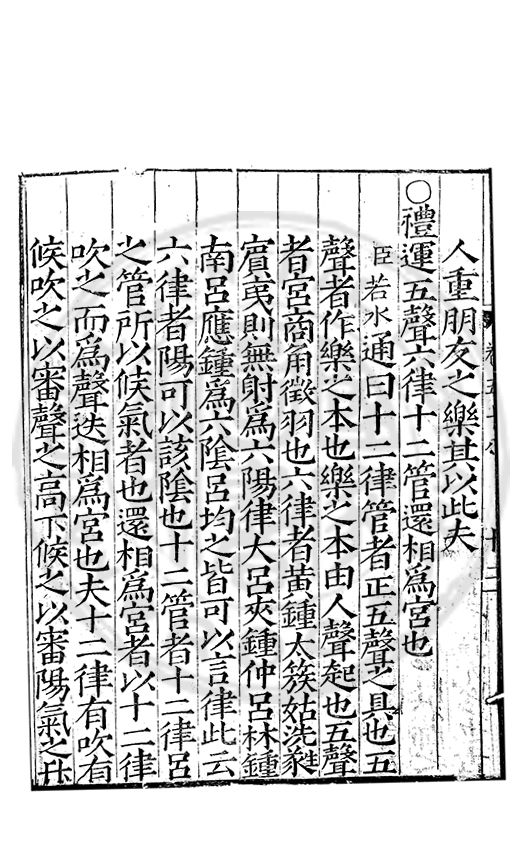 人重朋友之樂其以此夫
○禮運五聲六律十二管還相爲宮也
臣若水通曰十二律管者正五聲之具也五
聲者作樂之本也樂之本由人聲起也五聲
者宮商角徵羽也六律者黃鍾太簇姑洗蕤
賔夷則無射爲六陽律大呂夾鍾仲呂林鍾
南呂應鍾爲六陰呂均之皆可以言律此云
六律者陽可以該陰也十二管者十二律呂
之管所以候氣者也還相爲宮者以十二律
吹之而爲聲迭相爲宮也夫十二律有吹有
候吹之以審聲之高下候之以審陽氣之升